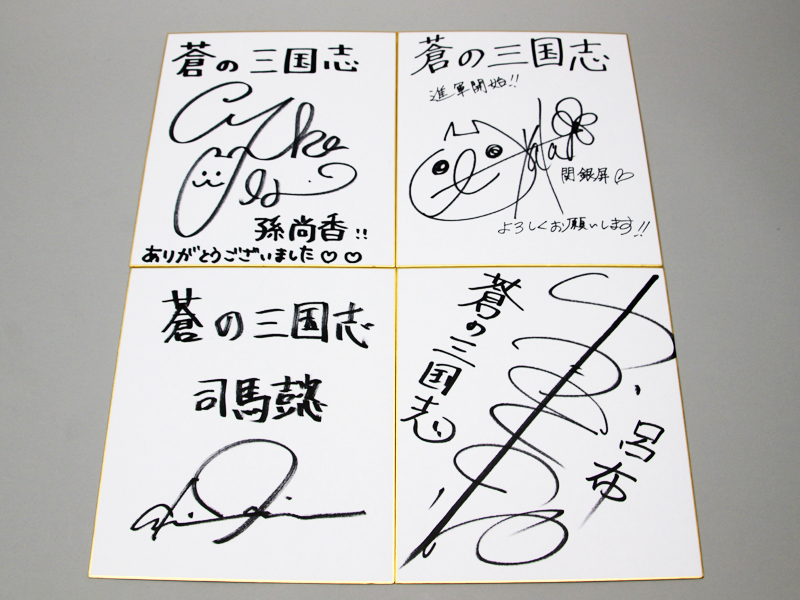 蒼の三国志
孫尚香!!
ありがとうございました♡♡
蒼の三国志
進軍開始!!
関銀屏♡
よろしくお願いします!!
蒼の三国志
司馬懿
蒼の三国志
呂布